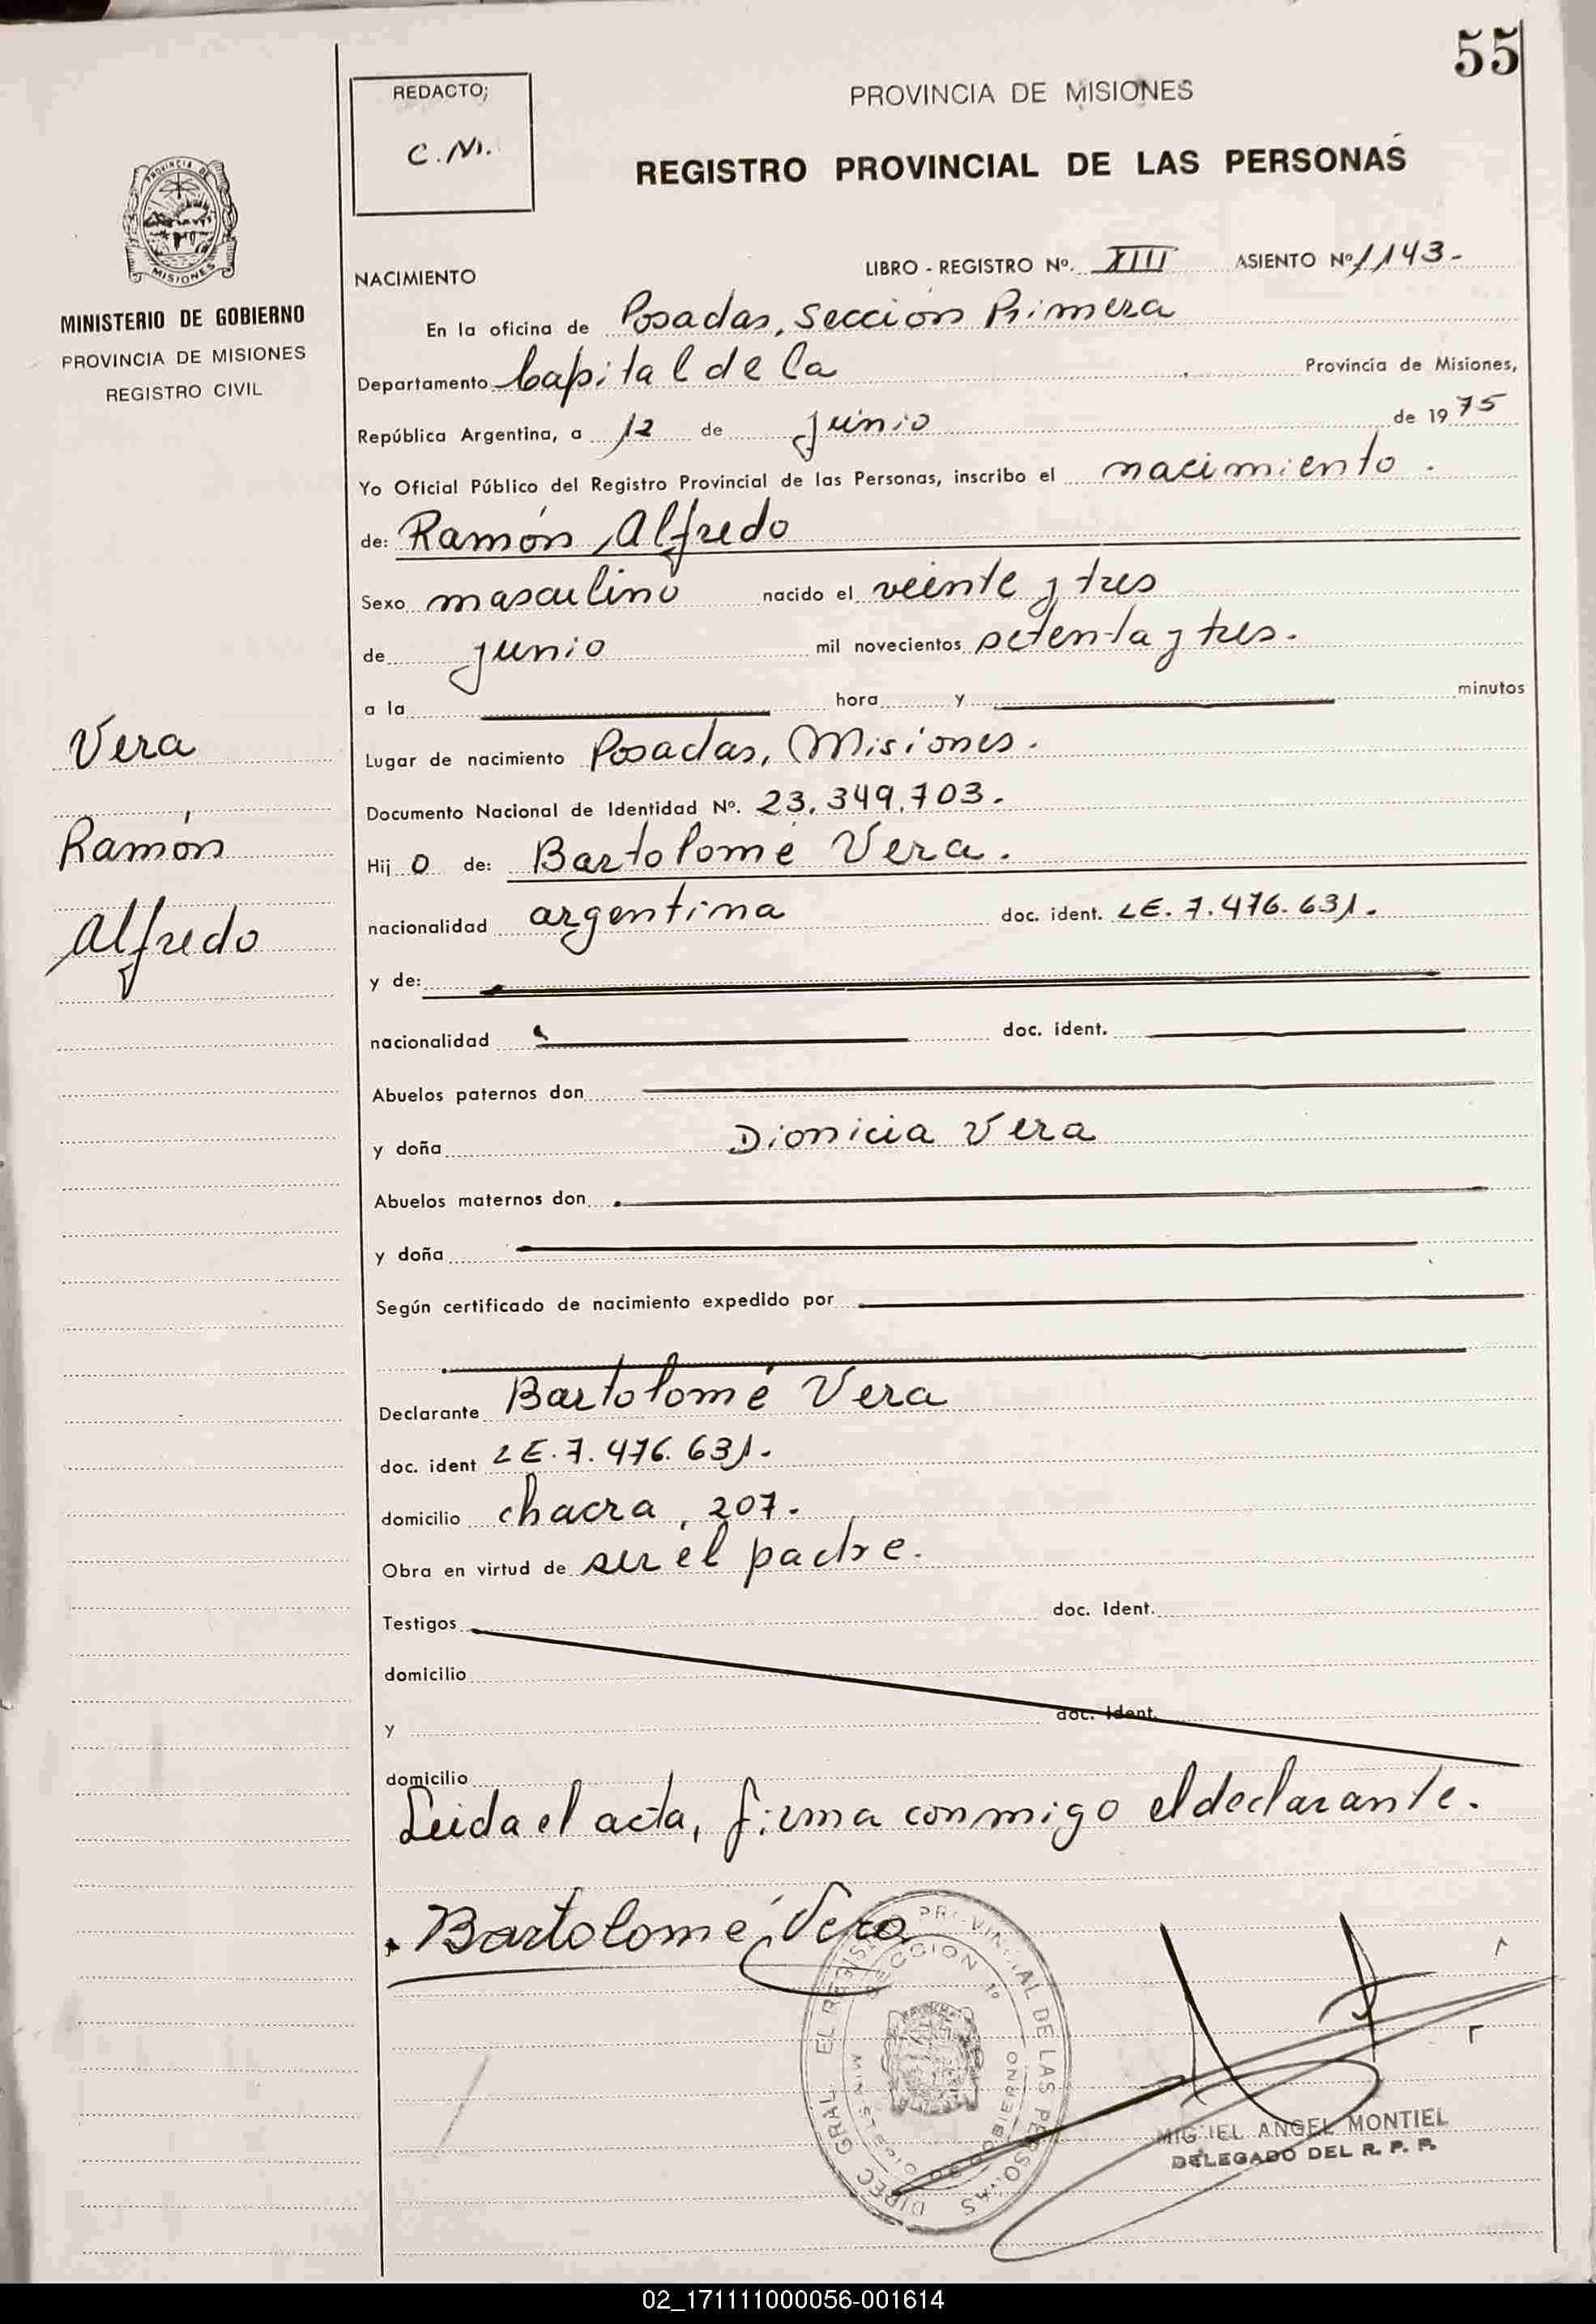 55
REDACTO;
C. M.
PROVINCIA DE MISIONES
REGISTRO PROVINCIAL DE LAS PERSONAS
MISIONES
MINISTERIO DE GOBIERNO
PROVINCIA DE MISIONES
REGISTRO CIVIL
NACIMIENTO LIBRO - REGISTRO Nº. XIII ASIENTO Nº 1143.-
En la oficina de Posadas, Sección Primera
Departamento Capital de la Provincia de Misiones,
República Argentina, a 12 de junio de 1975
Yo Oficial Público del Registro Provincial de las Personas, inscribo el nacimiento.
de: Ramón Alfredo
Sexo masculino nacido el veinte y tres
de junio mil novecientos setenta y tres.
a la hora y minutos
Vera
Lugar de nacimiento Posadas, Misiones.
Documento Nacional de Identidad Nº. 23.349.703.
Ramón
Hij o de: Bartolomé Vera.
Alfredo
nacionalidad argentina doc. ident. LE. 7.476.631.
y de:
nacionalidad doc. ident.
Abuelos paternos don
y doña Dionicia Vera
Abuelos maternos don
y doña
Según certificado de nacimiento expedido por
Declarante Bartolomé Vera
doc. ident LE. 7.476.631.
domicilio chacra, 207.
Obra en virtud de ser el padre.
Testigos doc. Ident.
domicilio
y doc. Ident.
domicilio
Leida el acta, firma conmigo el declarante.
Bartolomé Vera
DIREC GRAL EL REGISTRO PROVINCIAL DE LAS PERSONAS
SECCION 1º
GOBIERNO
MIGUEL ANGEL MONTIEL
DELEGADO DEL R. P. P.
02_171111000056-001614